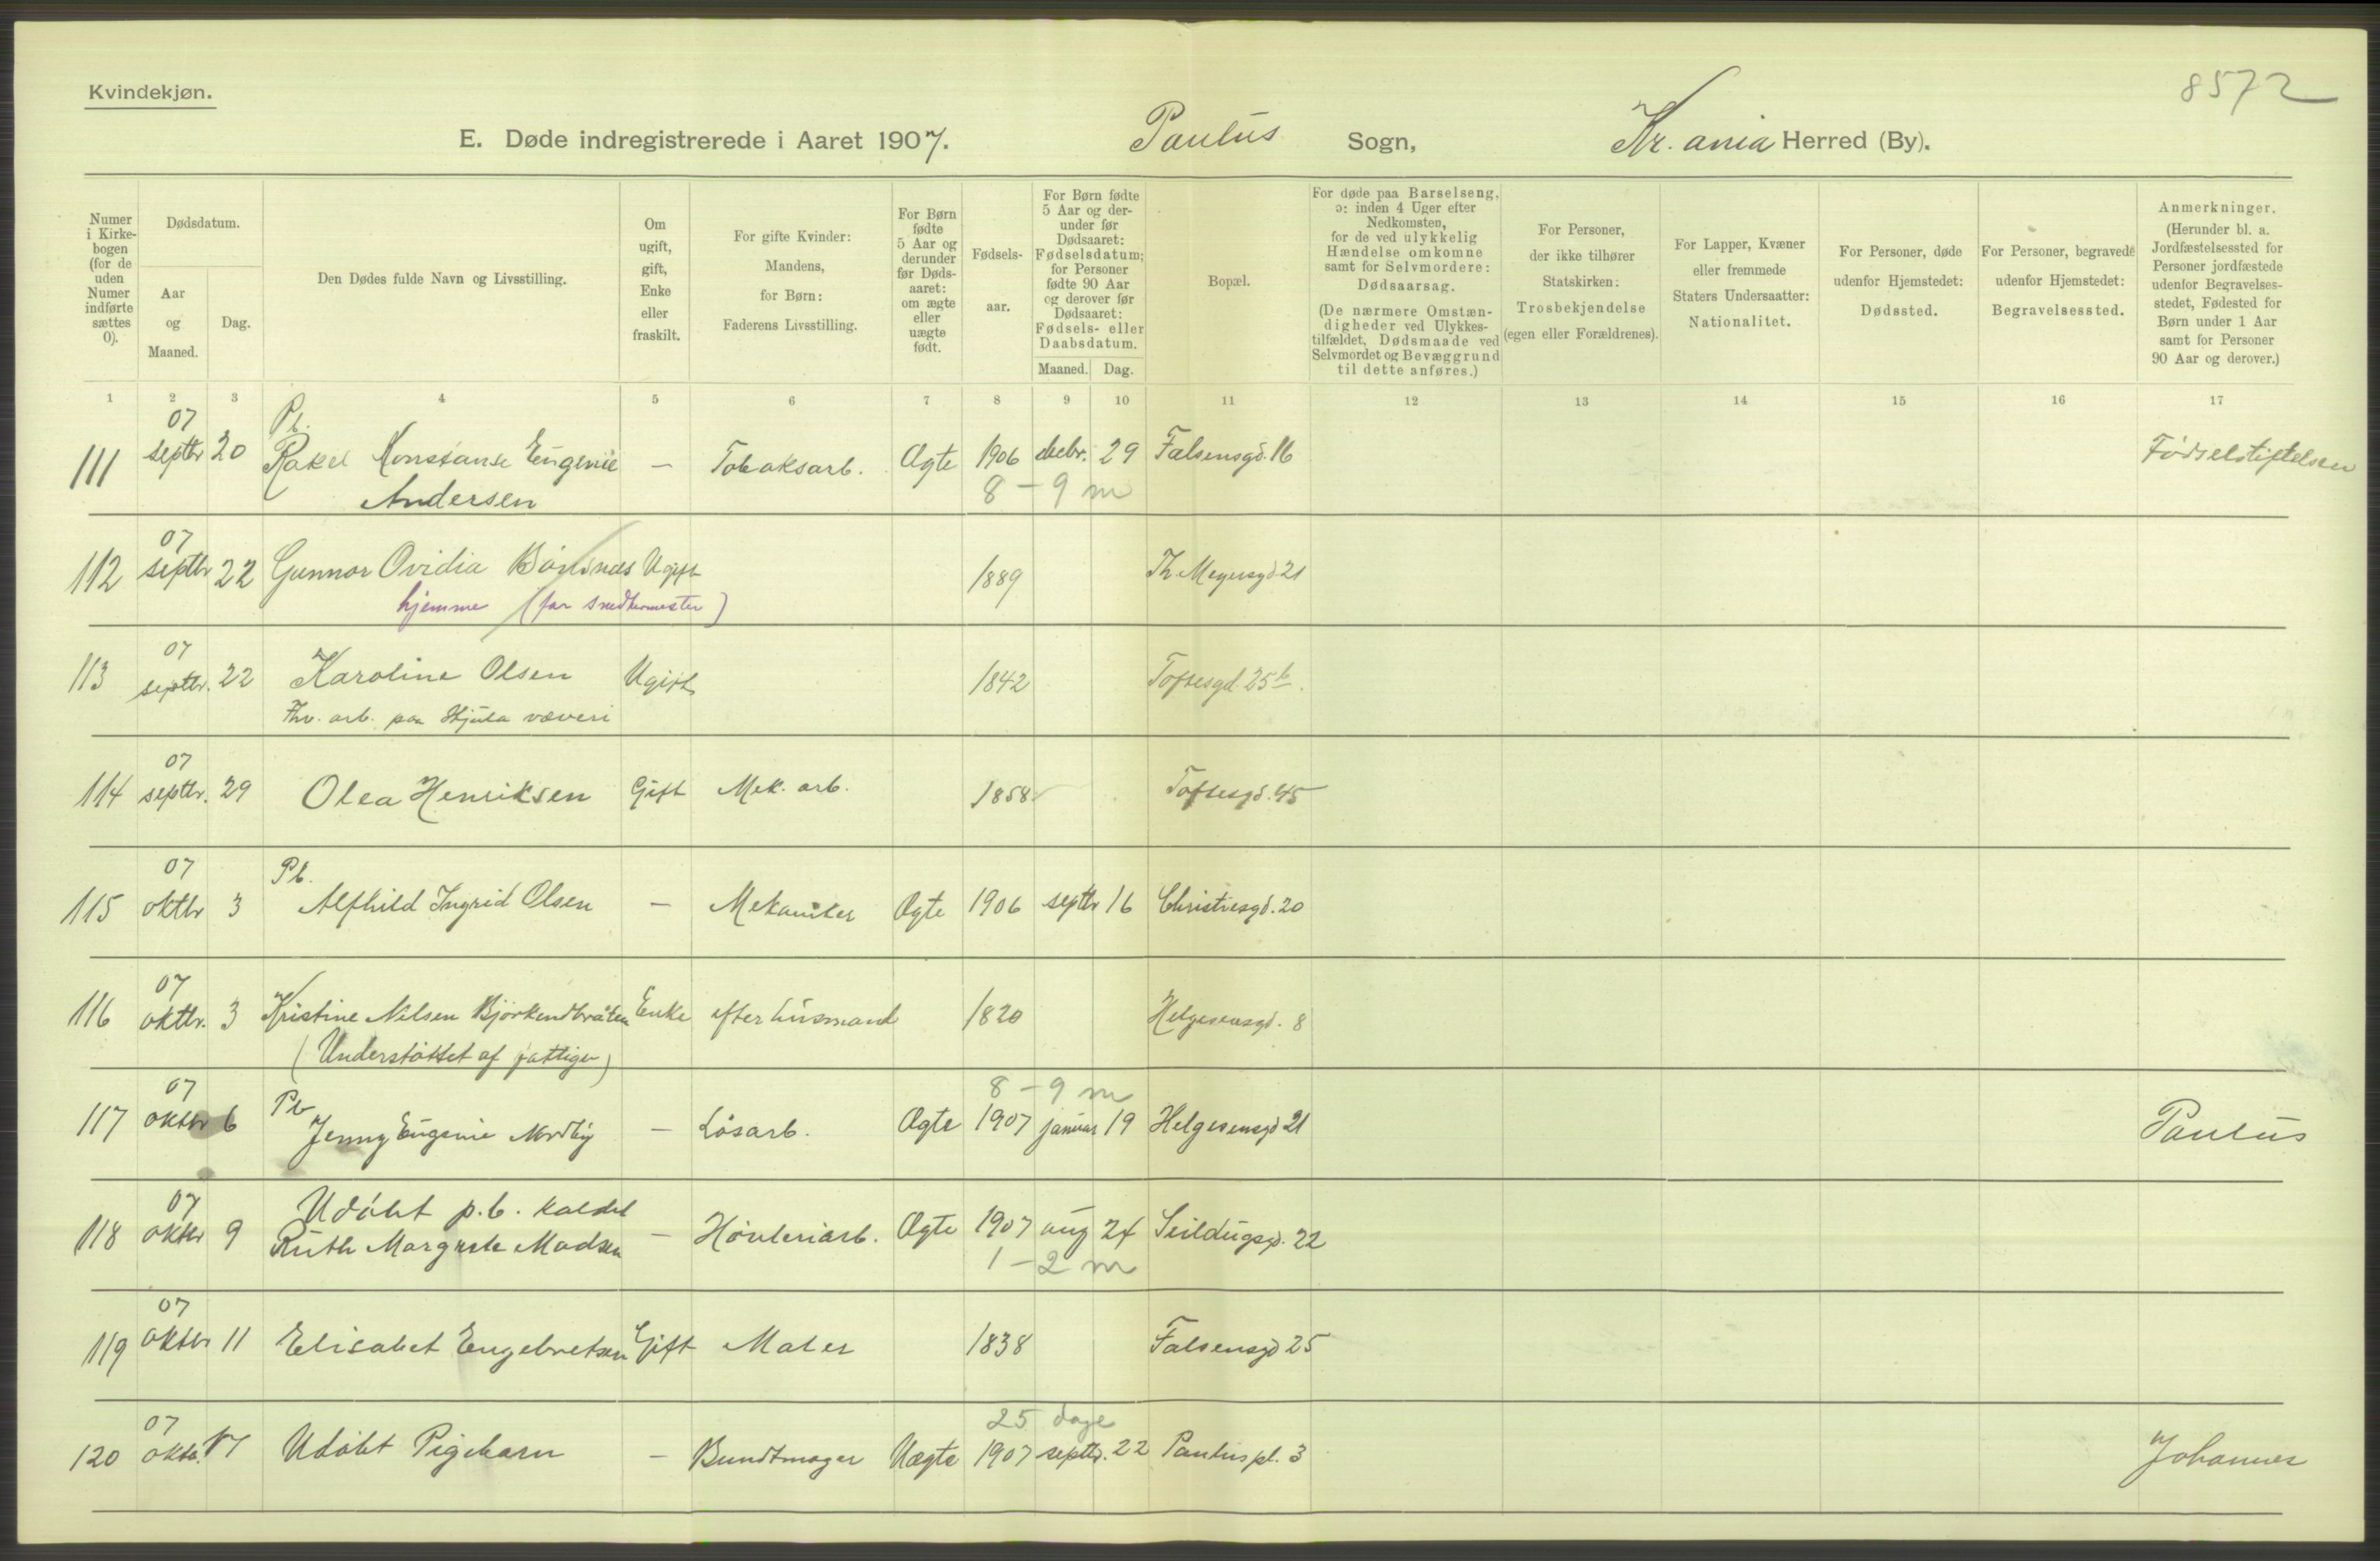 Kvindekjøn.
8572
E. Døde indregistrerede i Aaret 1907. Paulus Sogn, Kr. ania Herred (By).
Numer i Kirkebogen (for de uden Numer indførte sættes 0).
Dødsdatum.
Aar og Maaned.
Dag.
Den Dødes fulde Navn og Livsstilling.
Om ugift, gift, Enke eller fraskilt.
For gifte Kvinder: Mandens, for Børn: Faderens Livsstilling.
For Børn fødte 5 Aar og derunder før Dødsaaret: om ægte eller uægte født.
Fødselsaar.
For Børn fødte 5 Aar og derunder før Dødsaaret: Fødselsdatum; for Personer fødte 90 Aar og derover før Dødsaaret: Fødsels- eller Daabsdatum.
Maaned. Dag.
Bopæl.
For døde paa Barselseng, ɔ: inden 4 Uger efter Nedkomsten, for de ved ulykkelig Hændelse omkomne samt for Selvmordere: Dødsaarsag.
(De nærmere Omstændigheder ved Ulykkestilfældet, Dødsmaade ved Selvmordet og Bevæggrund til dette anføres.)
For Personer, der ikke tilhører Statskirken: Trosbekjendelse (egen eller Forældrenes).
For Lapper, Kvæner eller fremmede Staters Undersaatter: Nationalitet.
For Personer, døde udenfor Hjemstedet: Dødssted.
For Personer, begravede udenfor Hjemstedet: Begravelsessted.
Anmerkninger. (Herunder bl. a. Jordfæstelsessted for Personer jordfæstede udenfor Begravelsesstedet, Fødested for Børn under 1 Aar samt for Personer 90 Aar og derover.)
1 2 3 4 5 6 7 8 9 10 11 12 13 14 15 16 17
07 Pb.
111 septbr 20 Rakel Konstanse Eugenie — Tobaksarb. Ægte 1906 decbr. 29 Falsensgd. 16 Fødselstiftelsen
Andersen 8 – 9 m
07
112 septbr 22 Gunnor Ovidia Ugift 1889 Th. Meyersgd 21
hjemme (far snedkermester)
07
113 septbr. 22 Karoline Olsen Ugift 1842 Toftesgd. 25 b.
Fhv. arb. paa Hjula væveri
07
114 septbr. 29 Olea Henriksen Gift Mek. arb. 1858 Toftesgd. 45
07 Pb.
115 oktbr 3 Alfhild Ingrid Olsen — Mekaniker Ægte 1906 septbr 16 Christiesgd. 20
07
116 oktbr. 3 Kristine Nilsen Bjørkendbråten Enke efter husmand 1820 Helgesensgd. 8
(Understøttet af fattigv)
07 Pb 8 – 9 m
117 oktbr 6 Jenny Eugenie Nordby — Løsarb. Ægte 1907 januar 19 Helgesensgd 21 Paulus
07 Udøbt p.b. kaldet
118 oktbr 9 Ruth Margrete Madsen — Høvleriarb. Ægte 1907 aug 24 Seildugsgd. 22
1 – 2 m
07
119 oktbr 11 Elisabet Engebretsen Gift Maler 1838 Falsensgd 25
07 25 dage
120 oktb. 17 Udøbt Pigebarn — Bundtmager Uægte 1907 septbr. 22 Paulus pl. 3 Johannes